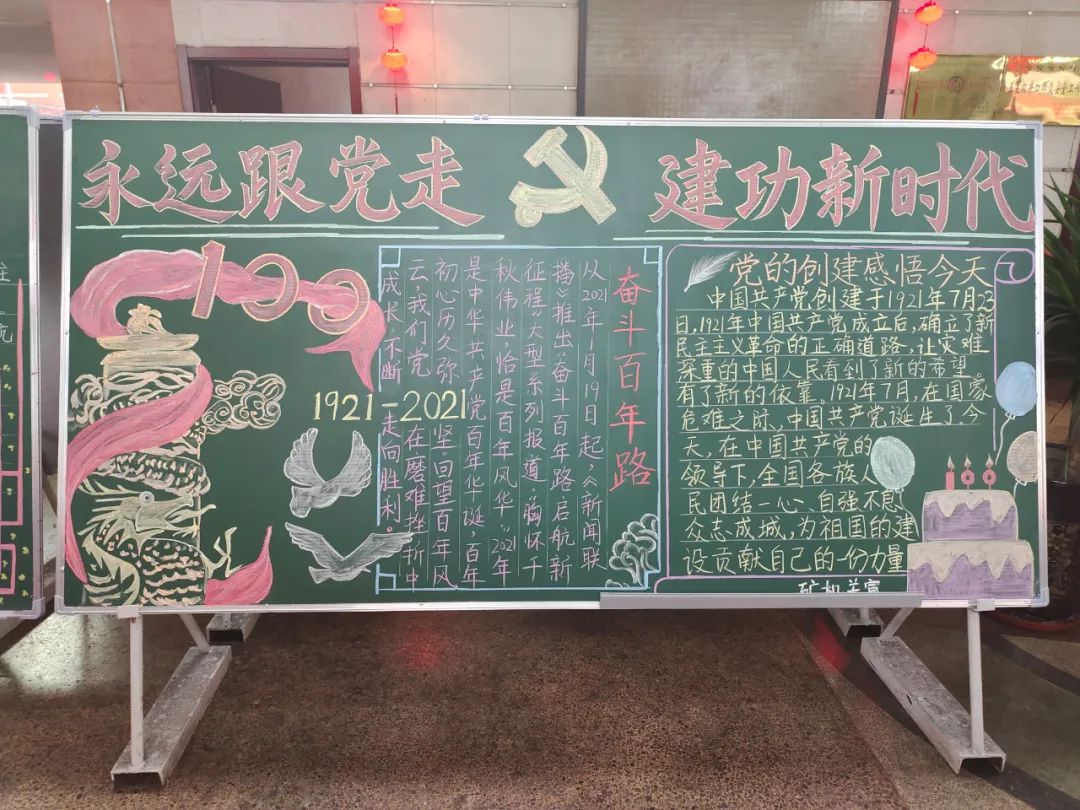 永远跟党走
建功新时代
100
1921-2021
奋斗百年路
从2021年1月19日起,《新闻联
播》推出“奋斗百年路启航新
征程”大型系列报道。“胸怀千
秋伟业,恰是百年风华”2021年
是中华共产党百年华诞,百年
初心历久弥坚。回望百年风
云,我们党在磨难挫折中
成长、不断走向胜利。
党的创建感悟今天
中国共产党创建于1921年7月23
日,1921年中国共产党成立后,确立了新
民主主义革命的正确道路,让灾难
深重的中国人民看到了新的希望。
有了新的依靠。1921年7月,在国家
危难之际,中国共产党诞生了。今
天,在中国共产党的
领导下,全国各族人
民团结一心、自强不息,
众志成城,为祖国的建
设贡献自己的一份力量
100